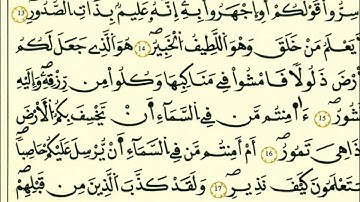 سِرُّوا۟ قَوْلَكُمْ أَوِ ٱجْهَرُوا۟ بِهِۦٓ إِنَّهُۥ عَلِيمٌۢ بِذَاتِ ٱلصُّدُورِ ١٣
يَعْلَمُ مَنْ خَلَقَ وَهُوَ ٱللَّطِيفُ ٱلْخَبِيرُ ١٤ هُوَ ٱلَّذِى جَعَلَ لَكُمُ
أَرْضَ ذَلُولًا فَٱمْشُوا۟ فِى مَنَاكِبِهَا وَكُلُوا۟ مِن رِّزْقِهِۦ وَإِلَيْهِ
نُّشُورُ ١٥ ءَأَمِنتُم مَّن فِى ٱلسَّمَآءِ أَن يَخْسِفَ بِكُمُ ٱلْأَرْضَ
ذَا هِىَ تَمُورُ ١٦ أَمْ أَمِنتُم مَّن فِى ٱلسَّمَآءِ أَن يُرْسِلَ عَلَيْكُمْ حَاصِبًا
تَعْلَمُونَ كَيْفَ نَذِيرِ ١٧ وَلَقَدْ كَذَّبَ ٱلَّذِينَ مِن قَبْلِهِمْ